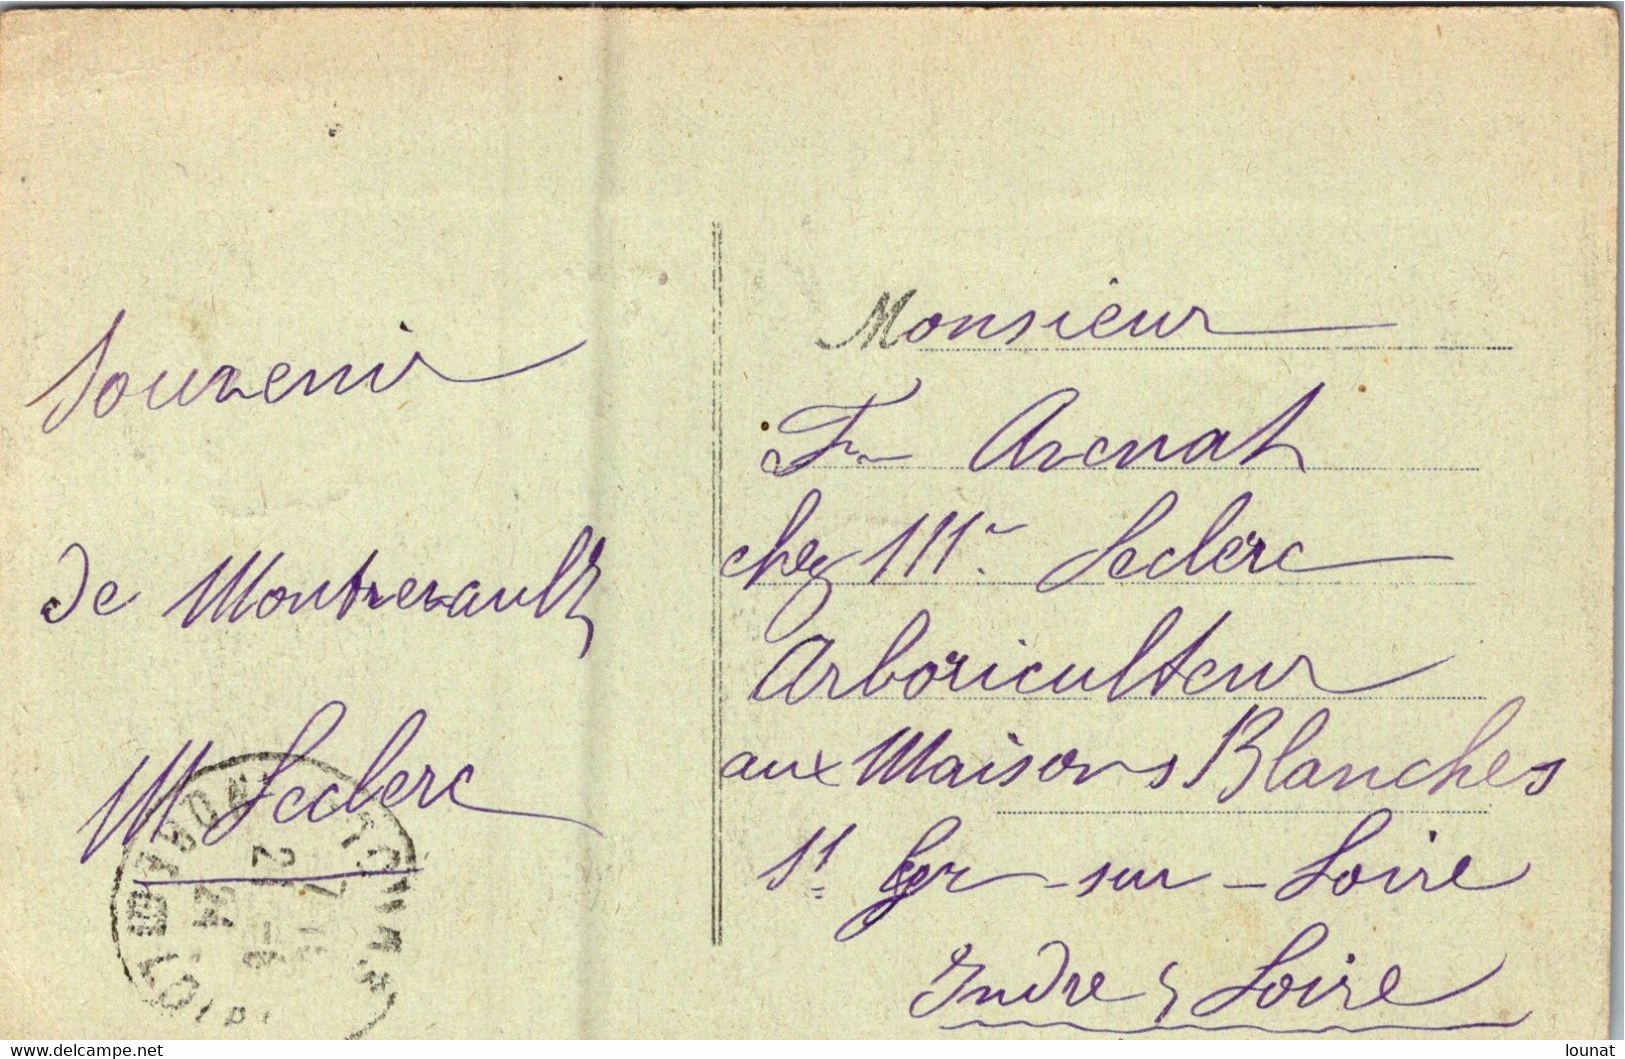 Souvenir
de Montrevault
M Leclerc
Monsieur
Fr Avenat
chez Mr. Leclerc
Arboriculteur
aux Maisons Blanches
St Cyr - sur - Loire
Indre & Loire
https://www.delcampe.net
lounat